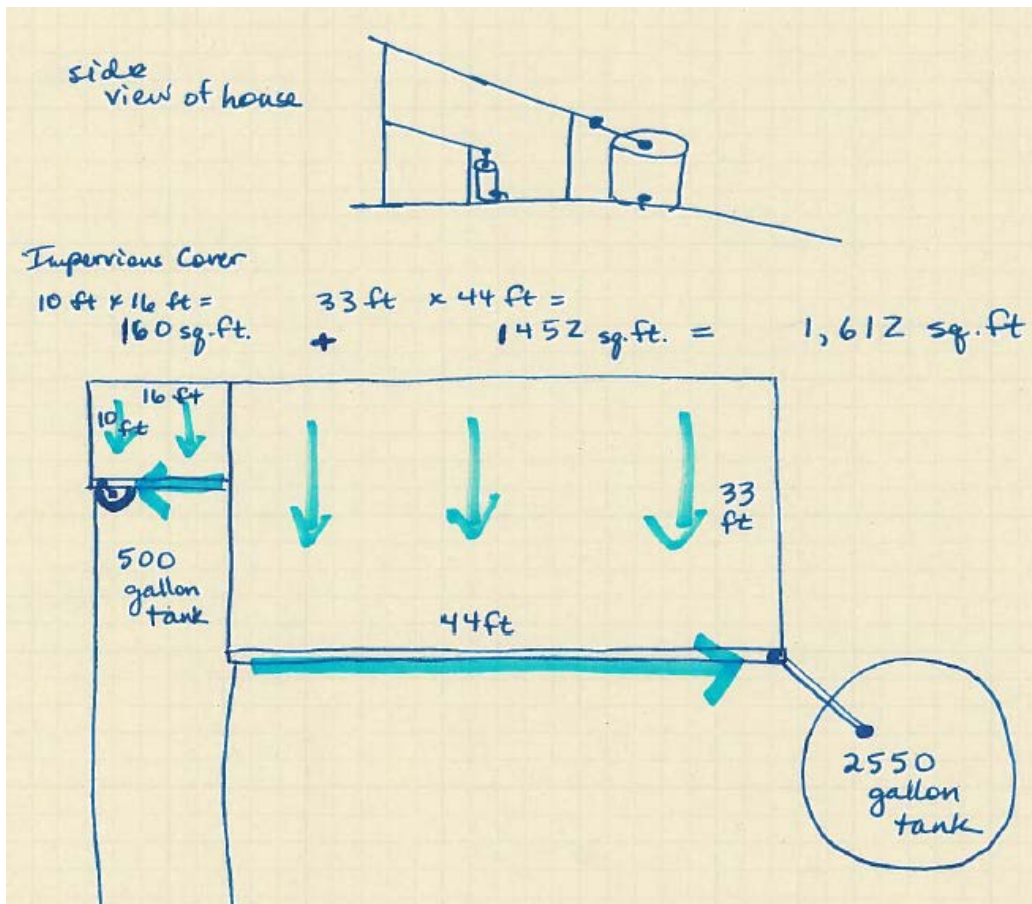 side
view of house
Impervious Cover
10 ft x 16 ft =
33 ft x 44 ft =
160 sq.ft.
+
1452 sq.ft. =
1,612 sq.ft
16 ft
10
ft
33
ft
500
gallon
tank
44ft
2550
gallon
tank